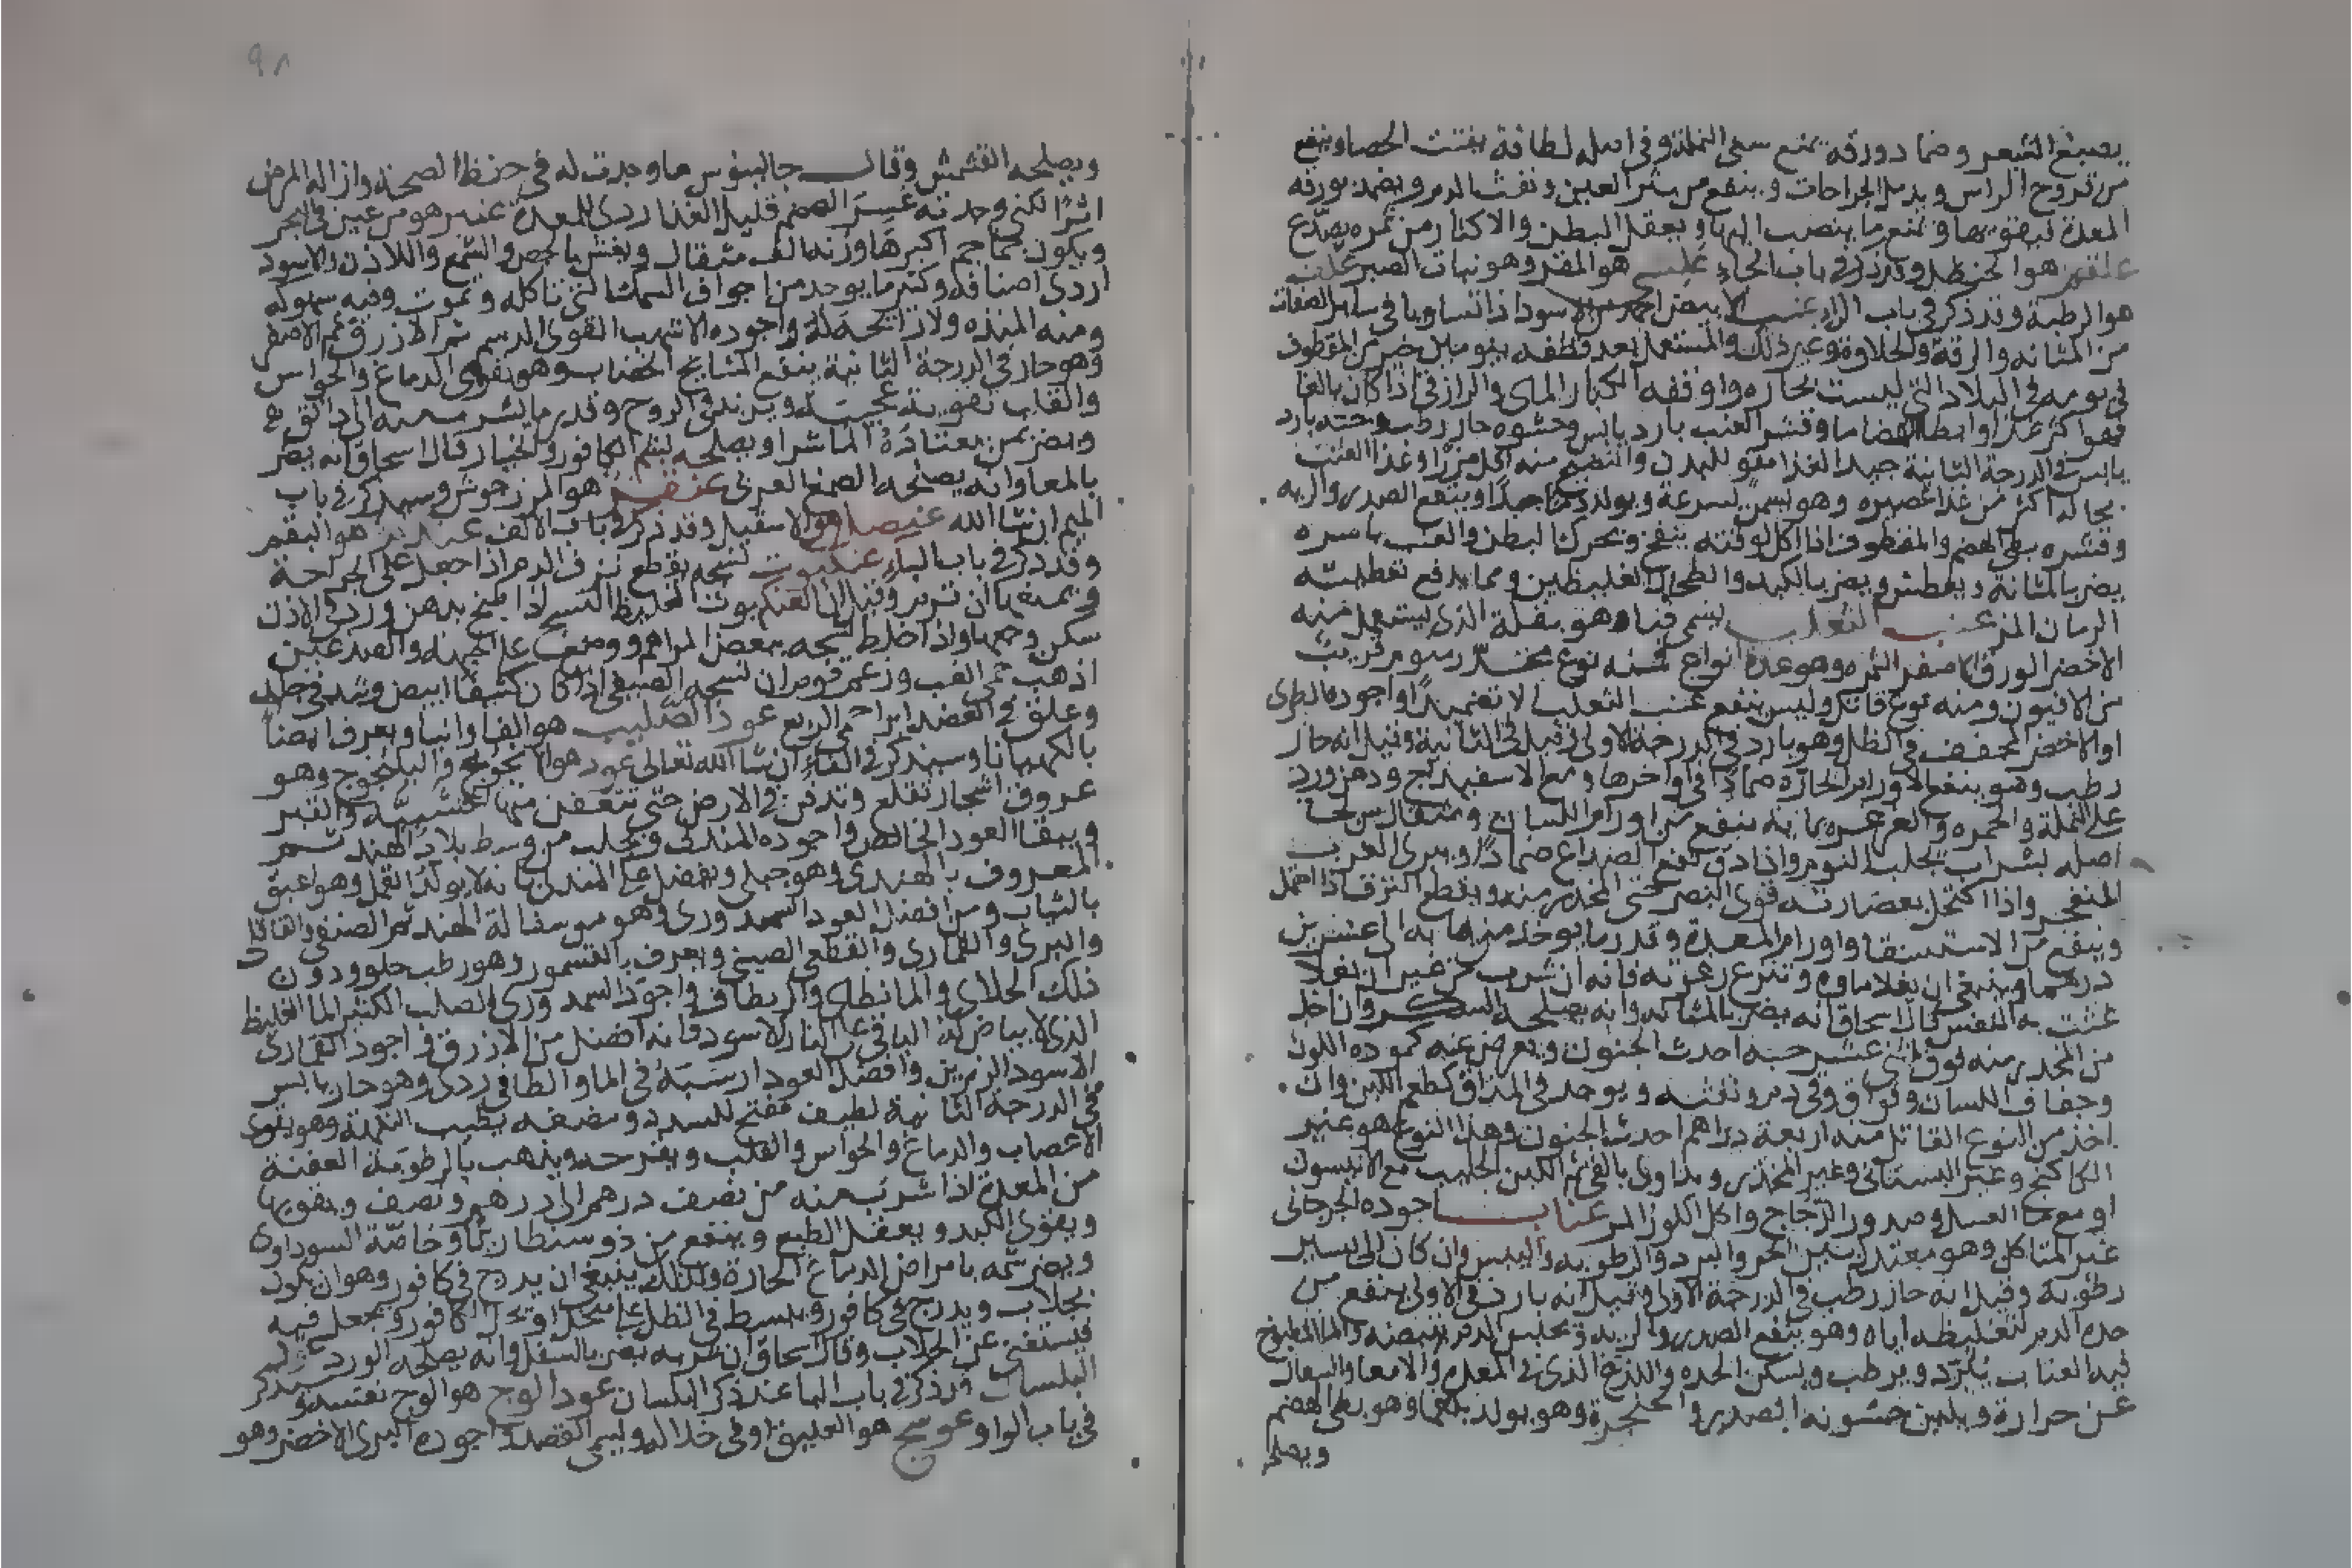 يصبغ الشعر وضماد ورقه يمنع سعى النملة وفى اصله لطافة يفتت الحصا وينفع
من قروح الراس ويدمل الجراحات وينفع من بثر العين ونفث الدم ويضمد بورقه
المعدة ليقويها ويمنع ما ينصب اليها ويعقل البطن والاكثار من ثمره يصدع
علقم هو الحنظل وقد ذكر فى باب الحاء هو المقر وهو نبات الصبر
هو الرطبة وقد ذكر فى باب الراء عنب الابيض احمد من الاسود اذا تساويا فى ساير الصفات
من المتانه والرقة والحلاوة وغير ذلك والمستعمل بعد قطفه بيومين خير من المقطوف
فى يومه فى البلاد التى ليست بحاره واوفقه الكبار المائ والرازقى اذا كان بالغا
فهو اكثر غذا وابطا انهضاما وقشر العنب بارد يابس وحشوه حار رطب وحبه بارد
يابس فى الدرجة الثانية جيد الغذا مقو للبدن والنضيج منه اقل ضررا وغذا العنب
بحاله اكثر من غذا عصيره وهو يسمن بسرعة ويولد دما جيدا وينفع الصدر والريه
وقشره بطى الهضم والمقطوف اذا اكل لوقته ينفخ ويحرك البطن والعنب باسره
يضر بالمثانة ويعطش ويضر بالكبد والطحال الغليظين ومما يدفع تعطيشه
الرمان المز عنب الثعلب يسمى فنا وهو بقلة الذى يستعمل منه
الاخضر الورق الاصفر الثمره وهو عدة انواع فمنه نوع مخدر منوم قريب
من الافيون ومنه نوع قاتل وليس ينفع عنب الثعلب الا تضميدا واجوده الطرى
او الاخضر المجفف فى الظل وهو بارد فى الدرجة الاولى وقيل فى الثانية وقيل انه حار
رطب وهو ينفع الاورام الحارة ضمادا فى اواخرها ومع الاسفيداج ودهن ورد
على النملة والحمره والغرغره بمايه ينفع من اورام اللسان ومثقال من لحا
اصله بشراب يجلب النوم واذا دق نفع الصداع ضمادا ويبرى الغرب
المنفجر واذا اكتحل بعصارته قوى البصر حتى المخدر منه ويقطع النزف اذا احتمل
وينفع من الاستسقا واورام المعدة وقدر ما يوخذ من مايه الى عشرين
درهما وينبغى ان يغلا ماوه وتنزع رغوته فانه ان شرب من غير ان يغلا
غثت به النفس قال اسحاق انه يضر بالمثانه وانه يصلحه السكر وان اخذ
من المخدر منه فوق اثنى عشر حبة احدث الجنون ويعرض عنه كمودة اللون
وجفاف اللسان وفواق وقى دم ونفثه ويوجد فى المذاق كطعم اللبن وان
اخذ من النوع القاتل منه اربعة دراهم احدث الجنون وهذا النوع هو غير
الكاكنج وغير البستانى وغير المخدر ويداوى بالقى ثم اللبن الحليب مع الانيسون
او مع العسل وصدور الدجاج واكل اللوز المر عناب اجوده الجرجانى
غير المتاكل وهو معتدل بين الحر والبرد والرطوبه واليبس وان كان الى يسير
رطوبة وقيل انه حار رطب فى الدرجة الاولى وقيل انه بارد فى الاولى ينفع من
حدة الدم لتغليظه اياه وهو ينفع الصدر والريه ويحبس الدم والما المطبوخ
فيه العناب يبرد ويرطب ويسكن الحده واللذع الذى فى المعدة والامعا والسعال
عن حرارة ويلين خشونة الصدر والحنجرة وهو يولد بلغما وهو بطى الهضم
ويصلحه
٩٨
ويصلحه القشمش وقال جالينوس ما وجدت له فى حفظ الصحة وازالة المرض
اثرا لكنى وجدته عسر الهضم قليل الغذا ردى للمعدة عنبر هو من عين فى البحر
ويكون جماجم اكبرها وزنه الف مثقال ويغش بالجص والشمع واللاذن والاسود
اردى اصنافه وكثير ما يوجد من اجواف السمك التى تاكله وتموت وفيه سهوكه
ومنه المنده ولا رائحة له واجوده الاشهب القوى الدسم ثم الازرق ثم الاصفر
وهو حار فى الدرجة الثانية ينفع المشايخ وهو يقوى الدماغ والحواس
والقلب تقوية عجيبة ويزيد فى الروح وقدر ما يشرب منه الى دانق
ويضر بمن يعتاده الماشرا ويصلحه شم الكافور والخيار قال اسحاق انه يضر
بالمعا وانه يصلحه الصمغ العربى عنقز هو المرزجوش وسيذكر فى باب
الميم ان شا الله عنصل هو الاسقيل وقد ذكر فى باب الالف عندم هو البقم
وقد ذكر فى باب الباء عنكبوت نسجه يقطع نزف الدم اذا جعل على الجراحة
ويمنعها ان ترم وقيل ان العنكبوت الغليظ النسج اذا طبخ بدهن ورد فى الاذن
سكن وجعها واذا خلط نسجه ببعض المراهم ووضع على الجبهة والصدغين
اذهب حمى الغب وزعم قوم ان نسجه الصفيق اذا كان كثيفا ابيض وشد فى جلد
وعلق فى العضد ابرا حمى الربع عود الصليب هو الفاوانيا ويعرف ايضا
بالكهيانا وسيذكر فى الفاء ان شا الله تعالى عود هو اليلنجوج وهو
عروق اشجار تقلع وتدفن فى الارض حتى تتعفن منها الخشبيه والقشر
ويبقا العود الخالص واجوده المندلى ويجلب من وسط بلاد الهند ثم
المعروف بالهندى وهو جبلى ويفضل على المندلى بانه لا يولد القمل وهو اعبق
بالثياب ومن افضل العود السمندورى وهو من سفالة الهند ثم الصنفى والقاقلى
والبرى والقمارى والقطعى الصينى ويعرف بالقسمور وهو رطب حلو ودون
ذلك الجلاى والمانطاى والريطاى واجود السمندورى الصلب الكثير الما الغليظ
الذى لا بياض فيه الباقى على النار الاسود فانه افضل من الازرق واجود القمارى
الاسود الرزين وافضل العود ارسبه فى الما والطافى ردى وهو حار يابس
فى الدرجة الثانية لطيف مفتح للسدد ومضغه يطيب النكهة وهو يقوى
الاعصاب والدماغ والحواس والقلب ويفرحه ويذهب بالرطوبة العفنة
من المعدة اذا شرب منه من نصف درهم الى درهم ونصف ويقويها
ويقوى الكبد ويعقل الطبع وينفع من ذوسنطاريا وخاصة السوداوى
ويضر شمه بامراض الدماغ الحارة ولذلك ينبغى ان يدرج فى كافور وهو ان يكون
بجلاب ويدرج فى كافور ويبسط فى الظل على منخل او يحل الكافور ويجعل فيه
فيستغنى عن الجلاب وقال اسحاق ان شربه يضر بالسفل وانه يصلحه الورد
البلسان وذكر فى باب البا عند ذكر البلسان عود الوج هو الوج نفسه وسيذكر
فى باب الواو عوسج هو العليق او فى خلاله ويسمى القصد واجوده البرى الاخضر وهو